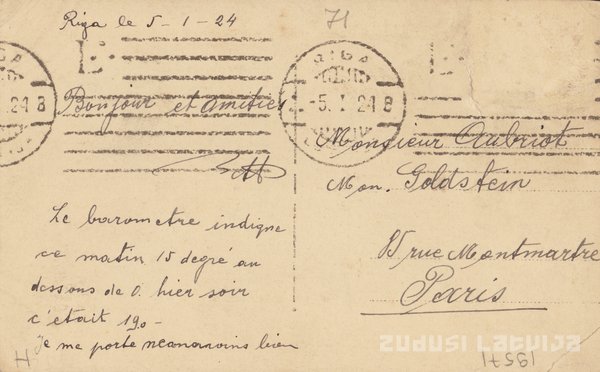 Riga le 5-1-24
71
RIGA
5. I 24 8
24 8
Bonjour et amitiés
Monsieur Aubriot
Mon. Goldstein
85 rue Montmartre
Paris
Le barometre indique
ce matin 15 degré au
dessous de 0. hier soir
c'était 190-
je me porte neanmoins bien
H
ZUDUSI LATVIJA
19571